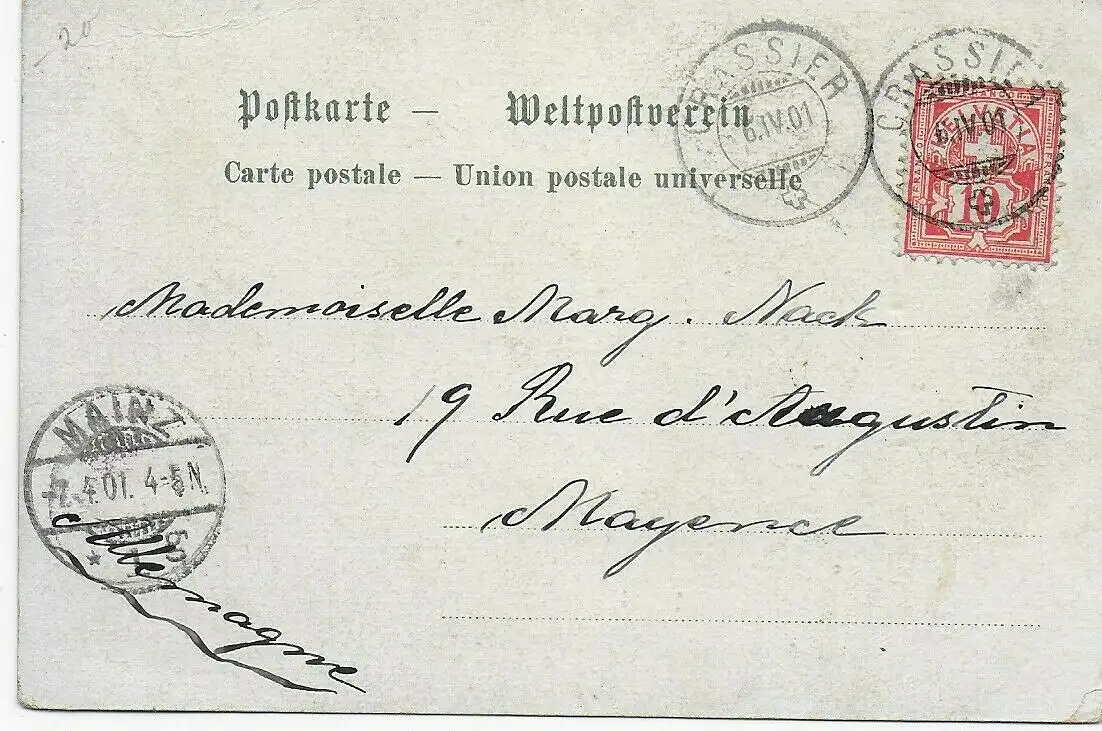 20
Postkarte — Weltpostverein
Carte postale — Union postale universelle
CRASSIER
6.IV.01
CRASSIER
6.IV.01
HELVETIA
10
Mademoiselle Marg. Nack
19 Rue d'Augustin
Mayence
MAINZ
7.4.01. 4-5N.
Allemagne